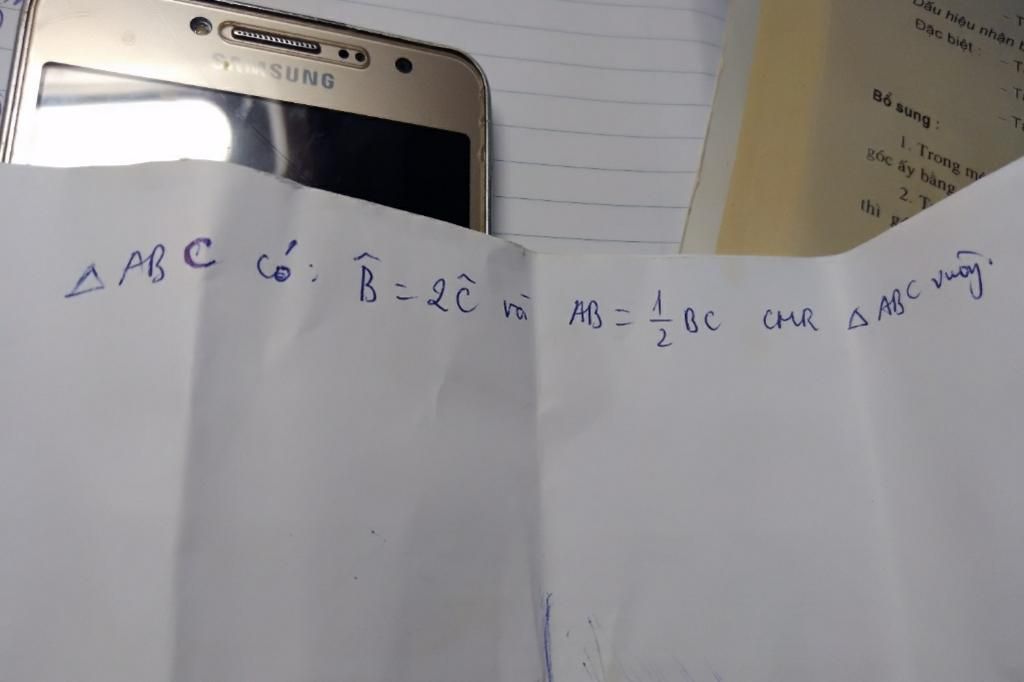 SAMSUNG
Dấu hiệu nhận
Đặc biệt :
Bổ sung :
1. Trong
góc ấy bằng
2.
thì
△ ABC có: B̂ = 2Ĉ và AB = 1/2 BC CMR △ ABC vuông.